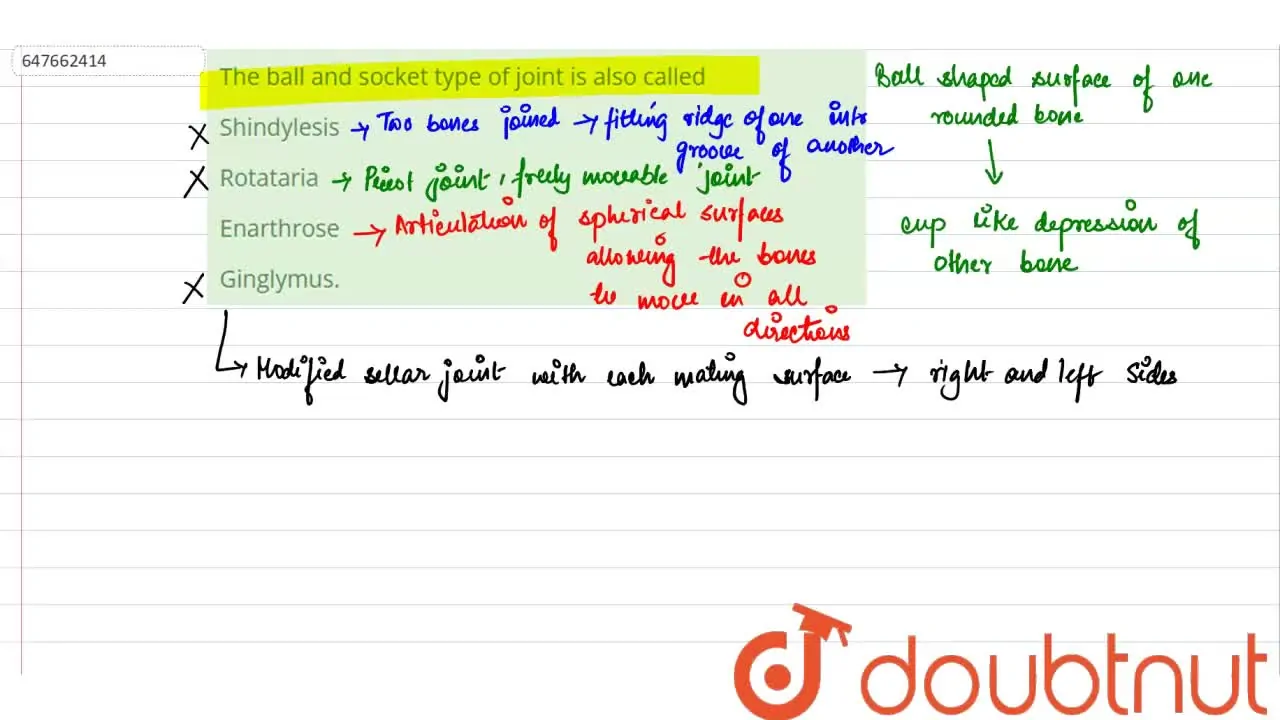 647662414
The ball and socket type of joint is also called
Ball shaped surface of one
rounded bone
Shindylesis → Two bones joined → fitting ridge of one into
groove of another
Rotataria → Pivot joint, freely moveable joint
Enarthrose → Articulation of spherical surfaces
allowing the bones
to move in all
directions
cup like depression of
other bone
Ginglymus.
→ Modified sellar joint with each mating surface → right and left sides
doubtnut